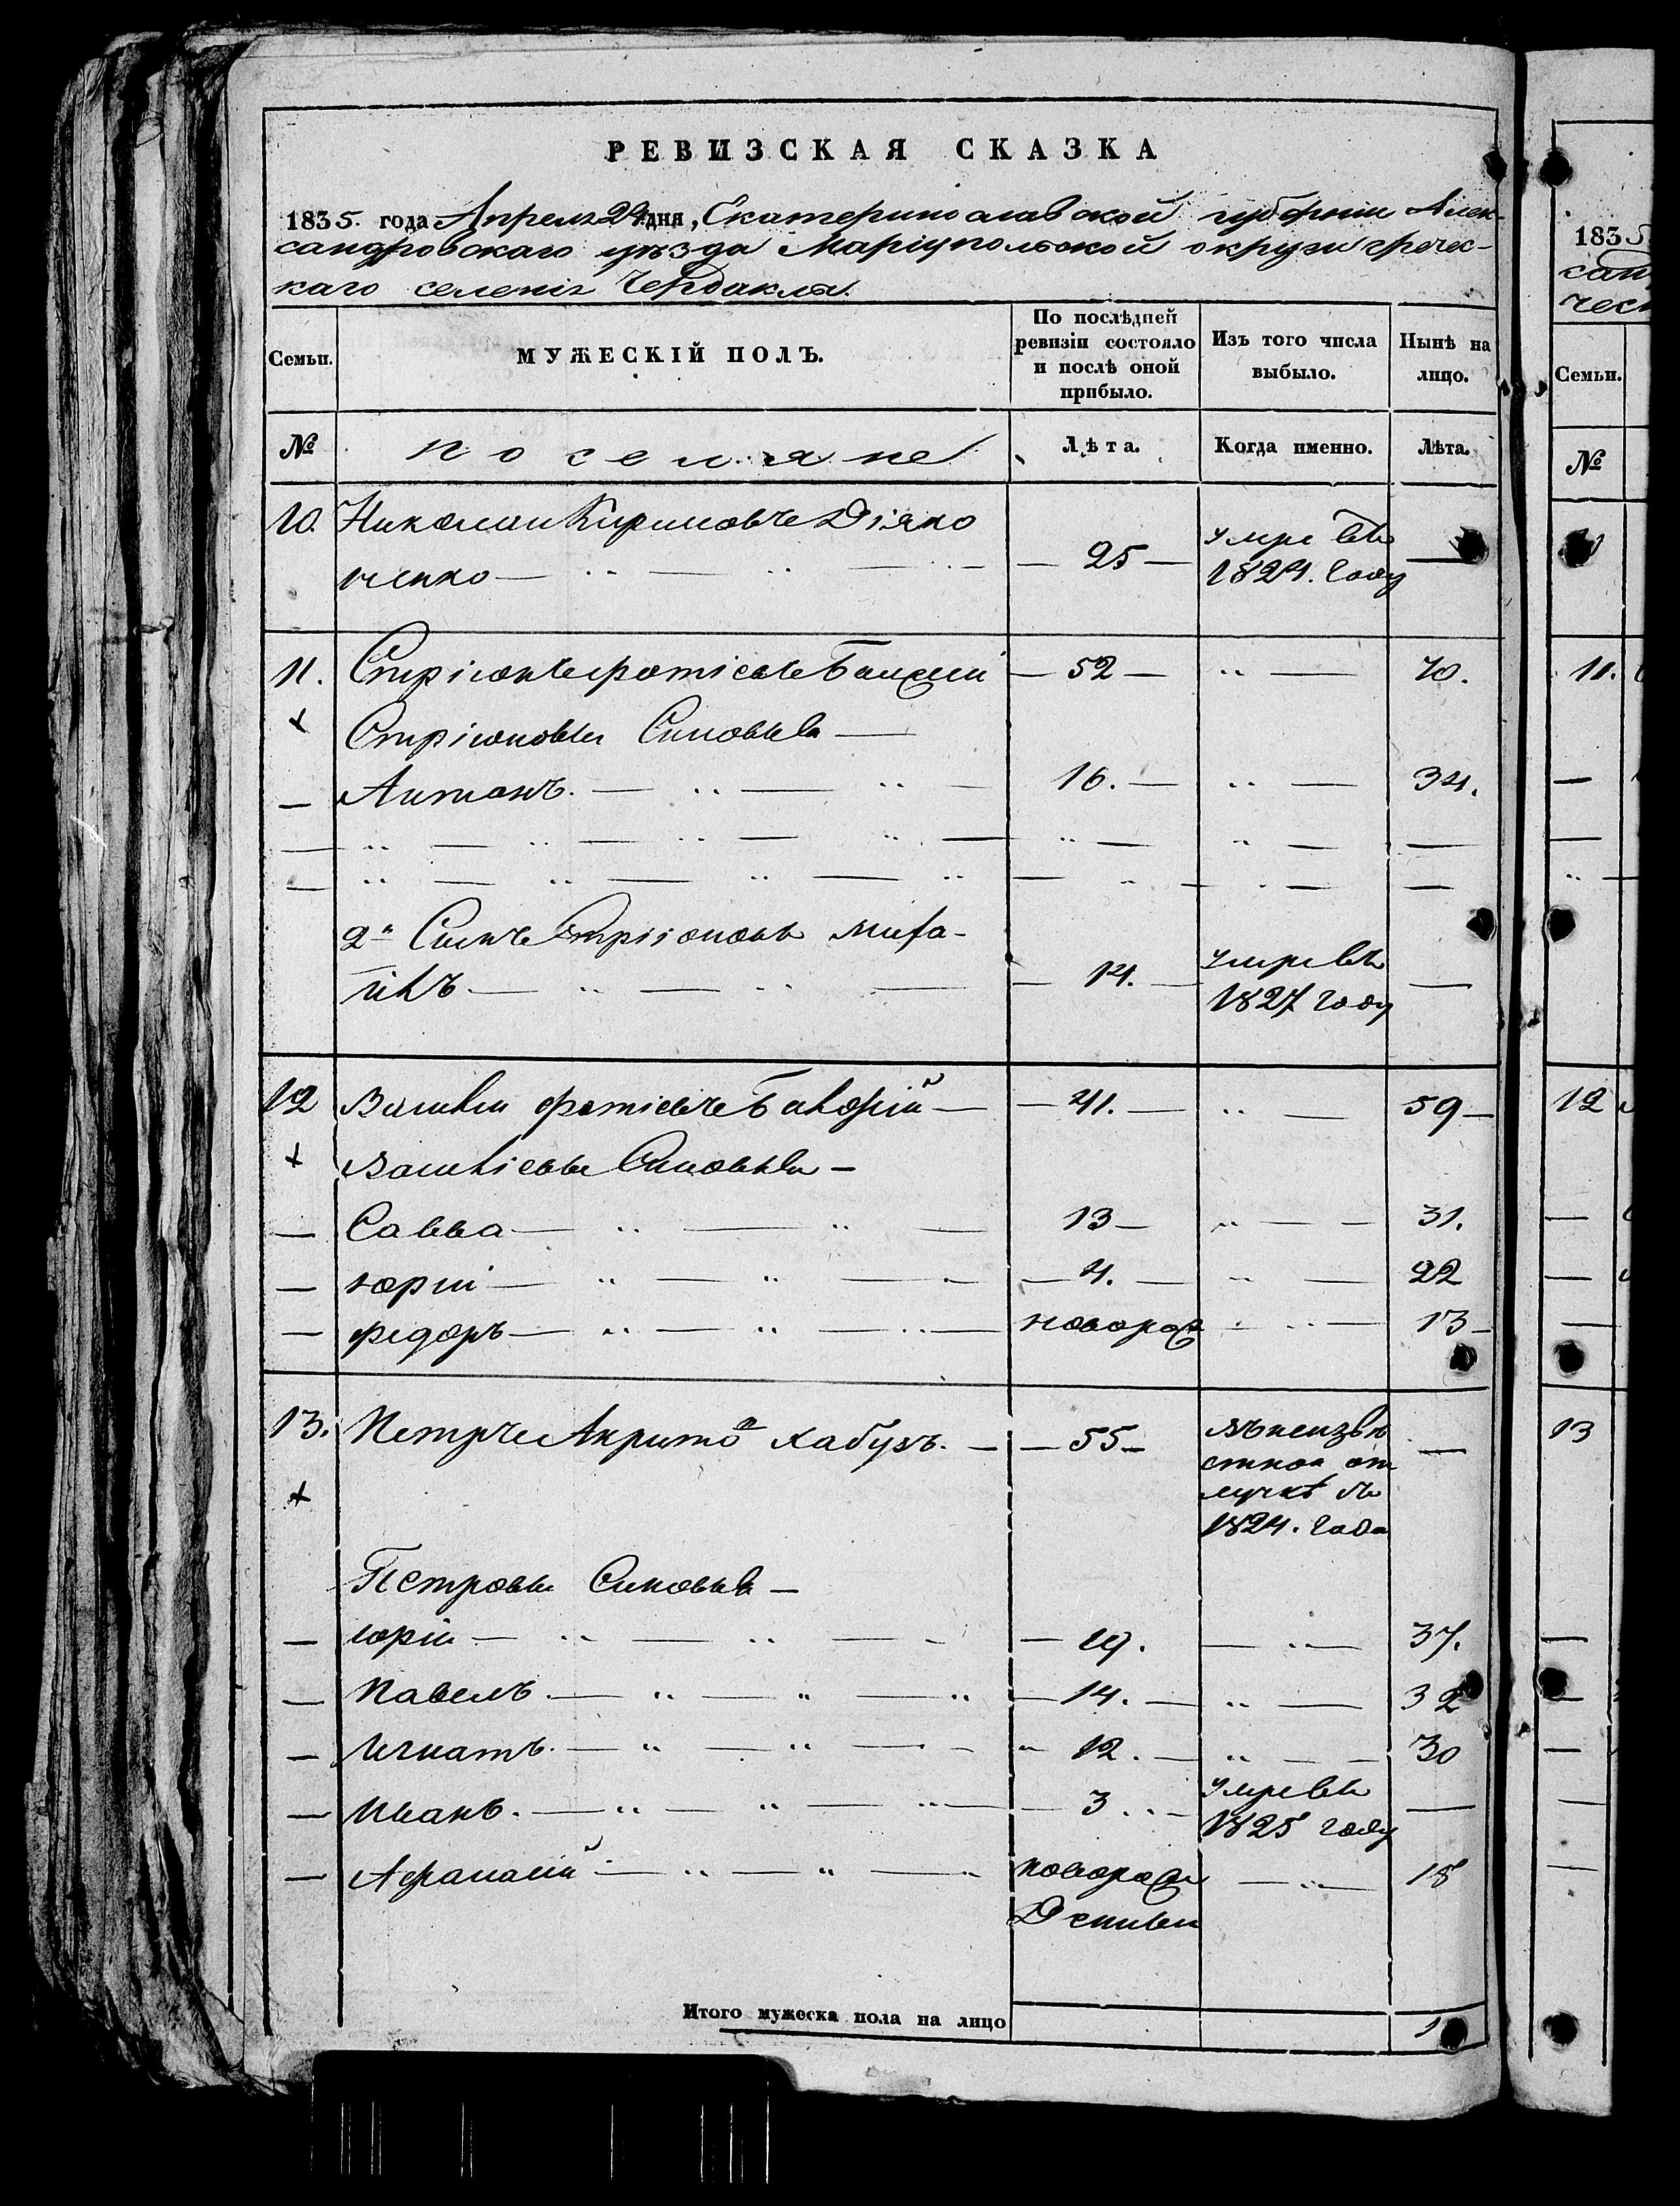 РЕВИЗСКАЯ СКАЗКА
1835. года Апреля 24 дня, Екатеринославской губернии Алек-
сандровскаго уѣзда Маріупольской округи гречес-
каго селенія Чердакли.
Семьи.
МУЖЕСКІЙ ПОЛЪ.
По послѣдней ревизіи состояло и послѣ оной прибыло.
Изъ того числа выбыло.
Нынѣ на лицо.
№ поселяне Лѣта. Когда именно. Лѣта.
10. Николай Кириловъ Діяко
ченко — 25 — умре въ 1824. году —
11. — 52 — 70.
+ Стріоновы Синовья —
— Антонъ. — 16. — 34.
2й Синъ Стріоновъ Миха-
илъ — 14. — умре въ 1827 году —
12 Василій Фотіевъ — 41. — 59 —
+ Василіевы Синовья —
— Савва — 13 — 31.
— Юрій — 4. — 22
— Федоръ — новорож 13 —
13. Петръ Хабузъ. — 55 — въ неизвѣ
стной от
лучкѣ съ
1824. года —
+
Петровы Синовья —
— Юрій — 19. — 37.
— Павелъ. — 14. — 32
— Игнатъ. — 12. — 30
— Иванъ. — 3 — умре въ
1825 году —
— Афанасій — новорож 18
Итого мужеска пола на лицо
1835
Семьи.
№
11.
12
13